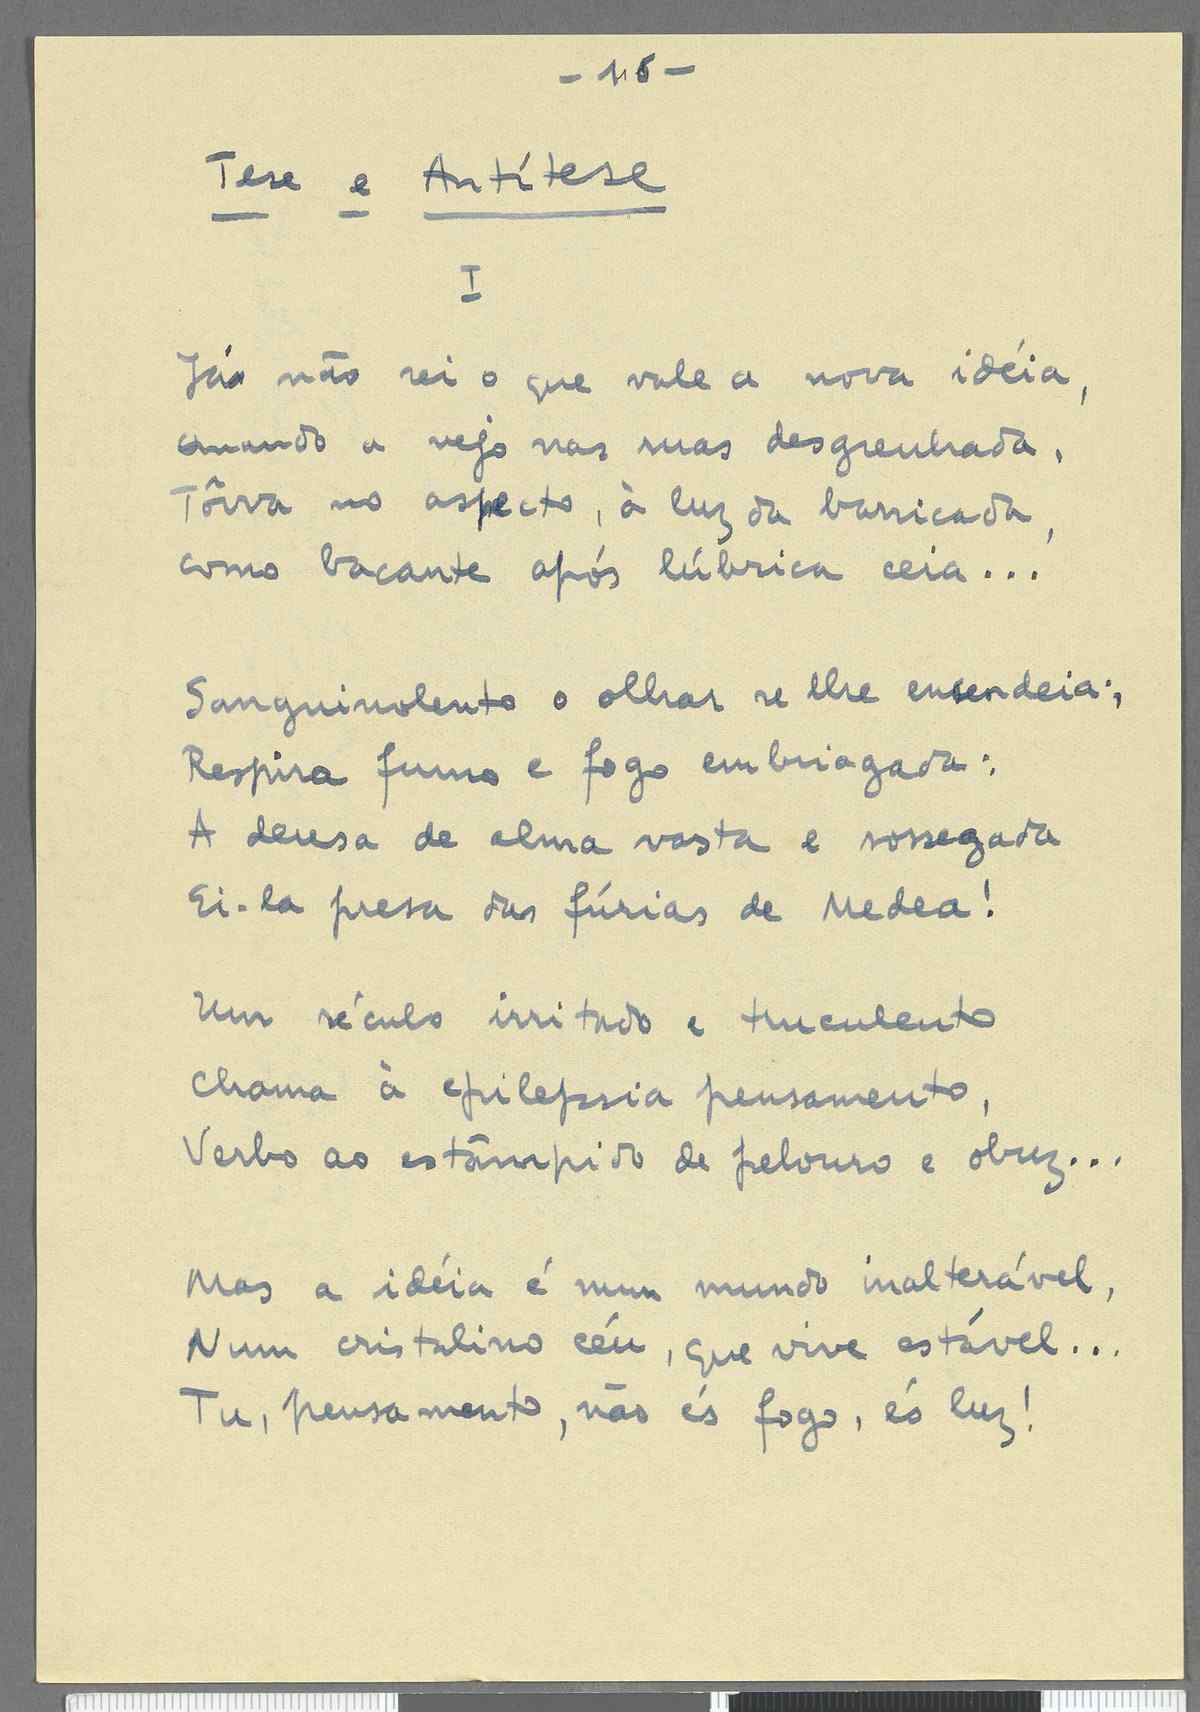 Tese e Antítese
I
Já não sei o que vale a nova idéia,
quando a vejo nas ruas desgrenhada,
Tôrva no aspecto, à luz da barricada,
como bacante após lúbrica ceia...
Sanguinolento o olhar se lhe ensendeia:,
Respira fumo e fogo embriagada:,
A deusa de alma vasta e sossegada
Ei-la presa das fúrias de Medea!
Um século irritado e truculento
Chama à epilepsia pensamento,
Verbo ao estâmpido de pelouro e obuz...
Mas a idéia é num mundo inalterável,
Num cristalino céu, que vive estável...
Tu, pensamento, não és fogo, és luz!